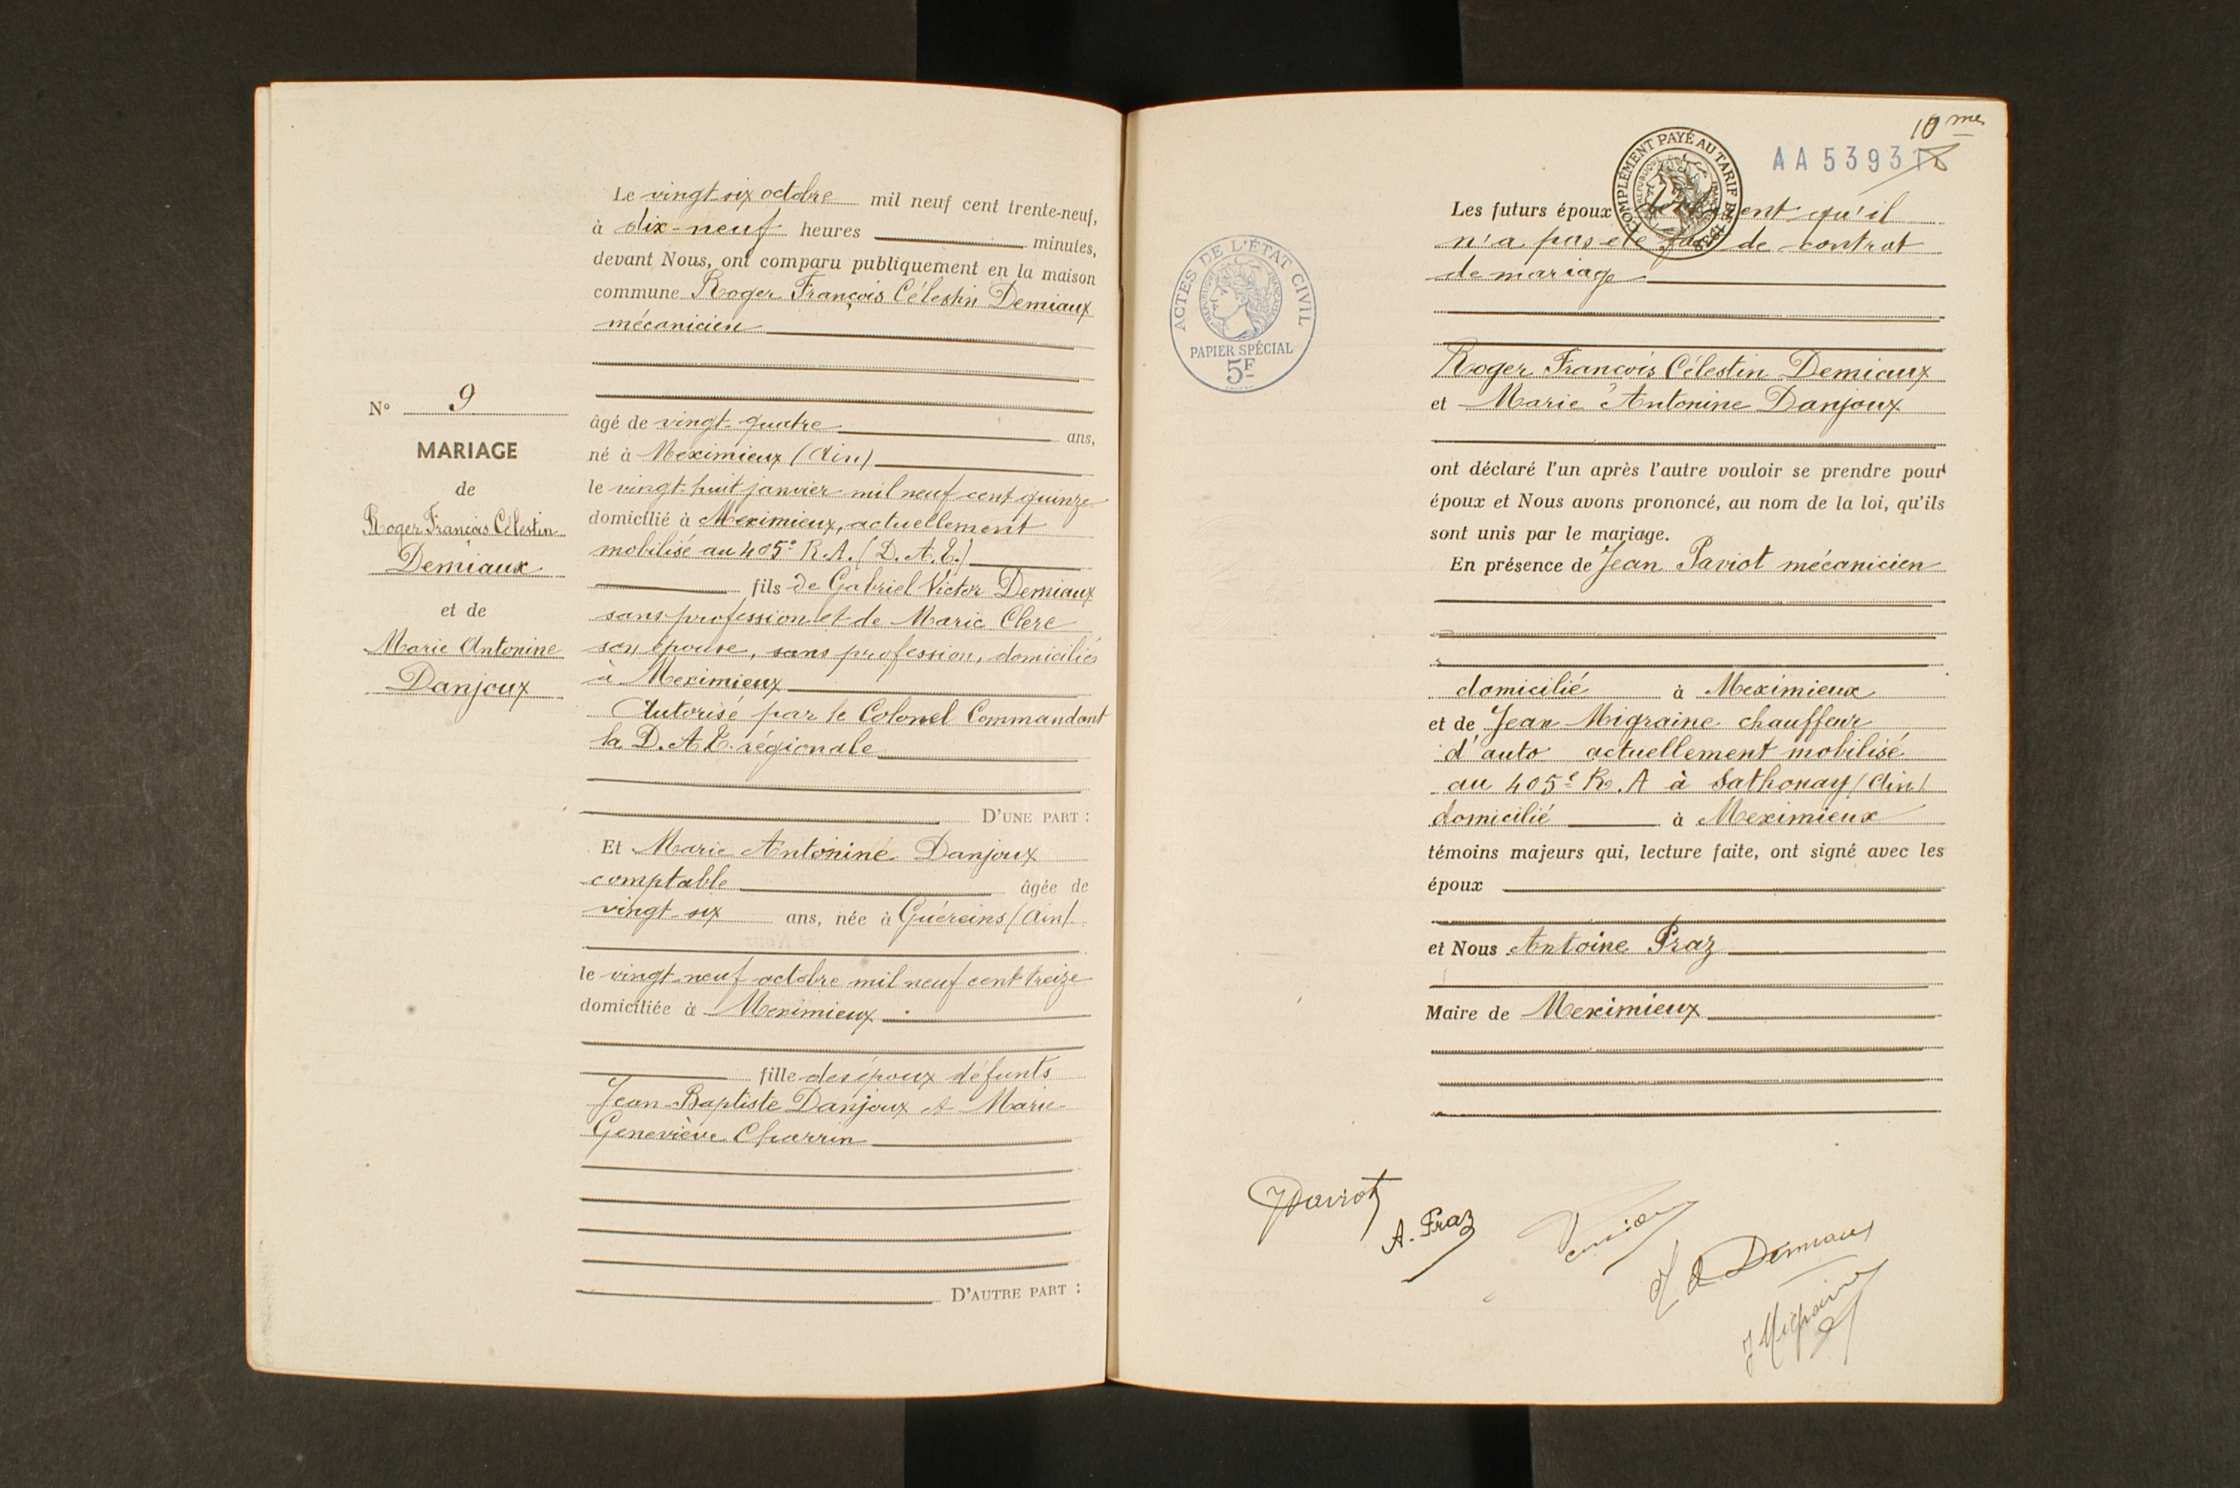 Le vingt six octobre mil neuf cent trente-neuf,
à dix-neuf heures minutes,
devant Nous, ont comparu publiquement en la maison
commune Roger François Célestin Demiaux
mécanicien
N° 9
MARIAGE
de
Roger François Célestin
Demiaux
et de
Marie Antonine
Danjoux
âgé de vingt-quatre ans,
né à Meximieux (Ain)
le vingt-huit janvier mil neuf cent quinze
domicilié à Meximieux, actuellement
mobilisé au 405e R.A. (D.A.T.)
fils de Gabriel Victor Demiaux
sans profession et de Marie Clerc
son épouse, sans profession, domiciliés
à Meximieux
Autorisé par le Colonel Commandant
la D.A.T. régionale
D'UNE PART :
Et Marie Antonine Danjoux
comptable âgée de
vingt-six ans, née à Guéreins (Ain)
le vingt-neuf octobre mil neuf cent treize
domiciliée à Meximieux
fille des époux défunts
Jean-Baptiste Danjoux et Marie
Geneviève Charrin
D'AUTRE PART :
10me
AA 53931
COMPLÉMENT PAYÉ AU TARIF DE 1938
ACTES DE L'ÉTAT CIVIL
RÉPUBLIQUE FRANÇAISE
PAPIER SPÉCIAL
5F
Les futurs époux déclarent qu'il
n'a pas été fait de contrat
de mariage
Roger François Célestin Demiaux
et Marie Antonine Danjoux
ont déclaré l'un après l'autre vouloir se prendre pour
époux et Nous avons prononcé, au nom de la loi, qu'ils
sont unis par le mariage.
En présence de Jean Paviot mécanicien
domicilié à Meximieux
et de Jean Migraine chauffeur
d'auto actuellement mobilisé
au 405e R.A à Sathonay (Ain)
domicilié à Meximieux
témoins majeurs qui, lecture faite, ont signé avec les
époux
et Nous Antoine Praz
Maire de Meximieux
J Paviot
A. Praz
Demiaux
J Migraine